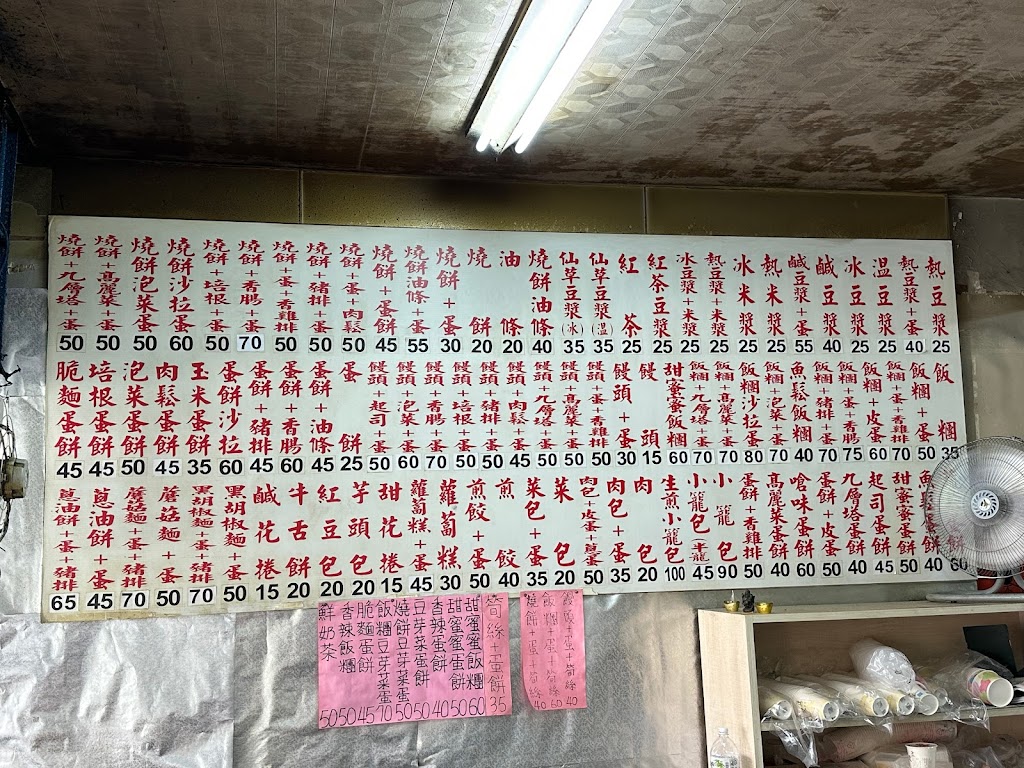 熱豆漿 25
熱豆漿+蛋 40
溫豆漿 25
冰豆漿 25
鹹豆漿 40
鹹豆漿+蛋 55
熱米漿 25
冰米漿 25
熱豆漿+米漿 25
冰豆漿+米漿 25
紅茶豆漿 25
紅茶 25
仙草豆漿(溫) 35
仙草豆漿(冰) 35
燒餅油條 40
油條 20
燒餅 20
燒餅+蛋 30
燒餅油條+蛋 55
燒餅+蛋餅 45
燒餅+蛋+肉鬆 50
燒餅+蛋+豬排 50
燒餅+蛋+香雞排 50
燒餅+香腸+蛋 70
燒餅+培根+蛋 50
燒餅沙拉蛋 60
燒餅泡菜蛋 50
燒餅+高麗菜+蛋 50
燒餅+九層塔+蛋 50
飯糰 35
飯糰+蛋 50
飯糰+蛋+香雞排 70
飯糰+皮蛋 60
飯糰+蛋+香腸 75
飯糰+豬排+蛋 70
魚鬆飯糰 40
飯糰+泡菜+蛋 70
飯糰沙拉蛋 80
飯糰+高麗菜+蛋 70
飯糰+九層塔+蛋 70
甜蜜蜜飯糰 60
饅頭 15
饅頭+蛋 30
饅頭+蛋+香雞排 50
饅頭+高麗菜+蛋 50
饅頭+九層塔+蛋 50
饅頭+肉鬆+蛋 45
饅頭+豬排+蛋 50
饅頭+培根+蛋 50
饅頭+香腸+蛋 70
饅頭+泡菜+蛋 60
饅頭+起司+蛋 50
蛋餅 25
蛋餅+油條 45
蛋餅+香腸 60
蛋餅+豬排 45
蛋餅沙拉 60
玉米蛋餅 35
肉鬆蛋餅 45
泡菜蛋餅 50
培根蛋餅 45
脆麵蛋餅 45
餅 60
魚鬆蛋餅 40
甜蜜蜜蛋餅 50
起司蛋餅 45
九層塔蛋餅 40
蛋餅+皮蛋 50
嗆味蛋餅 60
高麗菜蛋餅 40
蛋餅+香雞排 50
小籠包 90
小籠包(半籠) 45
生煎小籠包 100
肉包 20
肉包+蛋 35
肉包+皮蛋+蔥蛋 50
菜包 20
菜包+蛋 35
煎餃 40
煎餃+蛋 50
蘿蔔糕 30
蘿蔔糕+蛋 45
甜花捲 15
芋頭包 20
紅豆包 20
牛舌餅 20
鹹花捲 15
黑胡椒麵+蛋 50
黑胡椒麵+蛋+豬排 70
蘑菇麵+蛋 50
蘑菇麵+蛋+豬排 70
蔥油餅+蛋 45
蔥油餅+蛋+豬排 65
饅頭+蛋+筍絲 40
飯糰+蛋+筍絲 60
燒餅+蛋+筍絲 40
筍絲+蛋餅 35
甜蜜蜜飯糰 60
甜蜜蜜蛋餅 50
香辣蛋餅 40
豆芽菜蛋餅 50
燒餅豆芽菜蛋 50
飯糰豆芽菜蛋 70
脆麵蛋餅 45
香辣飯糰 50
鮮奶茶 50